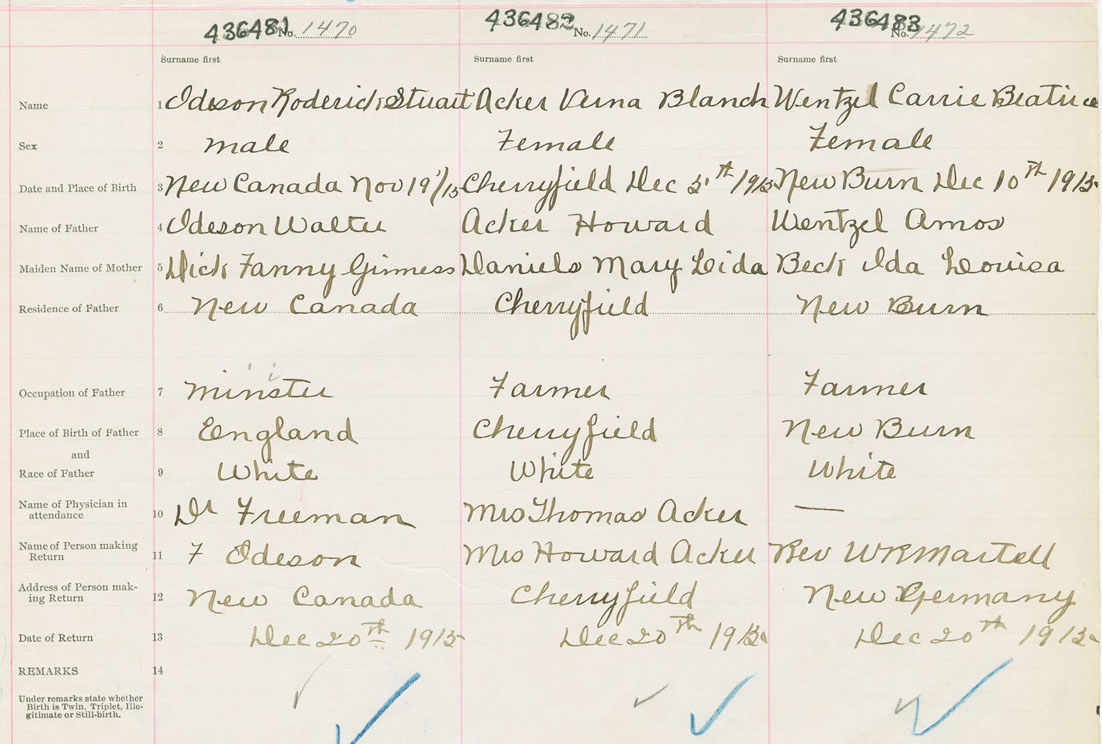 436481 No. 1470 436482 No. 1471 436483 No. 1472
Surname first Surname first Surname first
Name 1 Ideson Roderick Stuart Acker Verna Blanch Wentzel Carrie Beatrice
Sex 2 male Female Female
Date and Place of Birth 3 New Canada Nov 19'/15 Cherryfield Dec 5th 1915 New Burn Dec 10th 1915
Name of Father 4 Ideson Walter Acker Howard Wentzel Amos
Maiden Name of Mother 5 Dick Fanny Ginness Daniels Mary Lida Beck Ida Louisa
Residence of Father 6 New Canada Cherryfield New Burn
Occupation of Father 7 minster Farmer Farmer
Place of Birth of Father 8 England Cherryfield New Burn
and
Race of Father 9 White White White
Name of Physician in
attendance 10 Dr Freeman Mrs Thomas Acker —
Name of Person making
Return 11 F Ideson Mrs Howard Acker Rev WR Martell
Address of Person mak-
ing Return 12 New Canada Cherryfield New Germany
Date of Return 13 Dec 20th 1915 Dec 20th 1915 Dec 20th 1915
REMARKS 14
Under remarks state whether
Birth is Twin, Triplet, Ille-
gitimate or Still-birth.